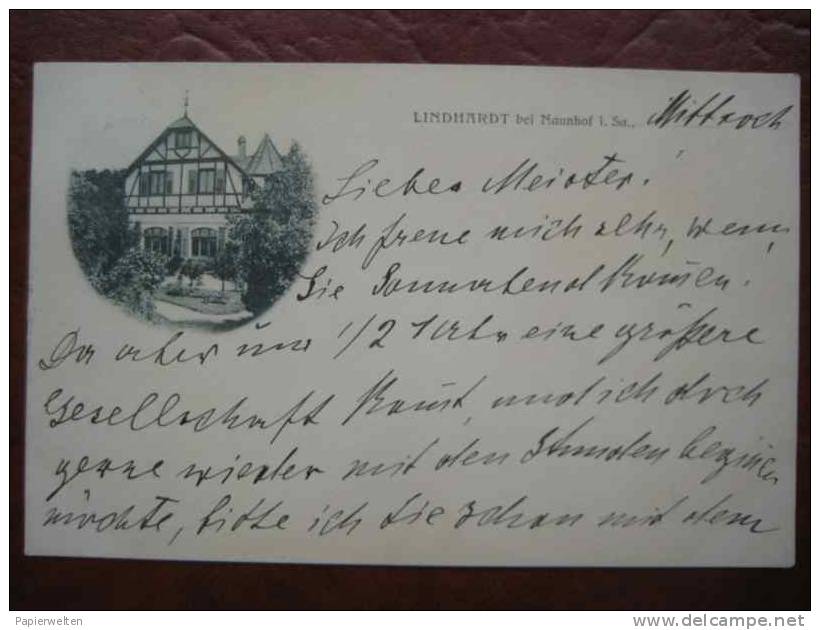 LINDHARDT bei Naunhof i. Sa., Mittwoch
Lieber Meister!
Ich freue mich sehr, wenn
Sie Sonnabend kom̅en.
Da aber um 1/2 1 Uhr eine größere
Gesellschaft kom̅t, und ich doch
gerne wieder mit den Stunden begin̅en
möchte, bitte ich Sie schon mit dem
Papierwelten
www.delcampe.net